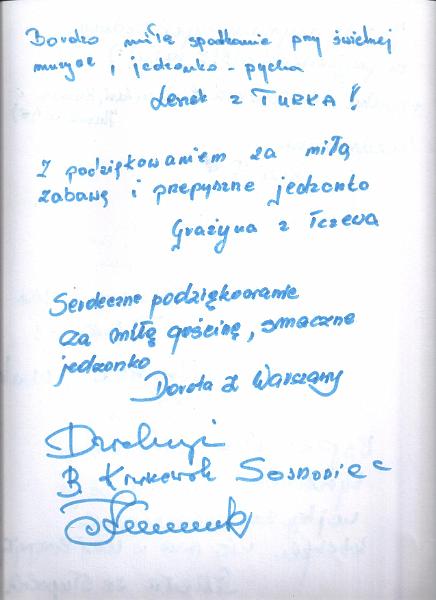 Bardzo miłe spotkanie przy świetnej
muzyce i jedzonko - pycha
Lenok z TURKA!
Z podziękowaniem za miłą
zabawę i przepyszne jedzonko
Grażyna z Tczewa
Serdeczne podziękowanie
za miłą gościnę, smaczne
jedzonko
Dorota z Warszawy
Dziękuję
B Krukowsk Sosnowiec